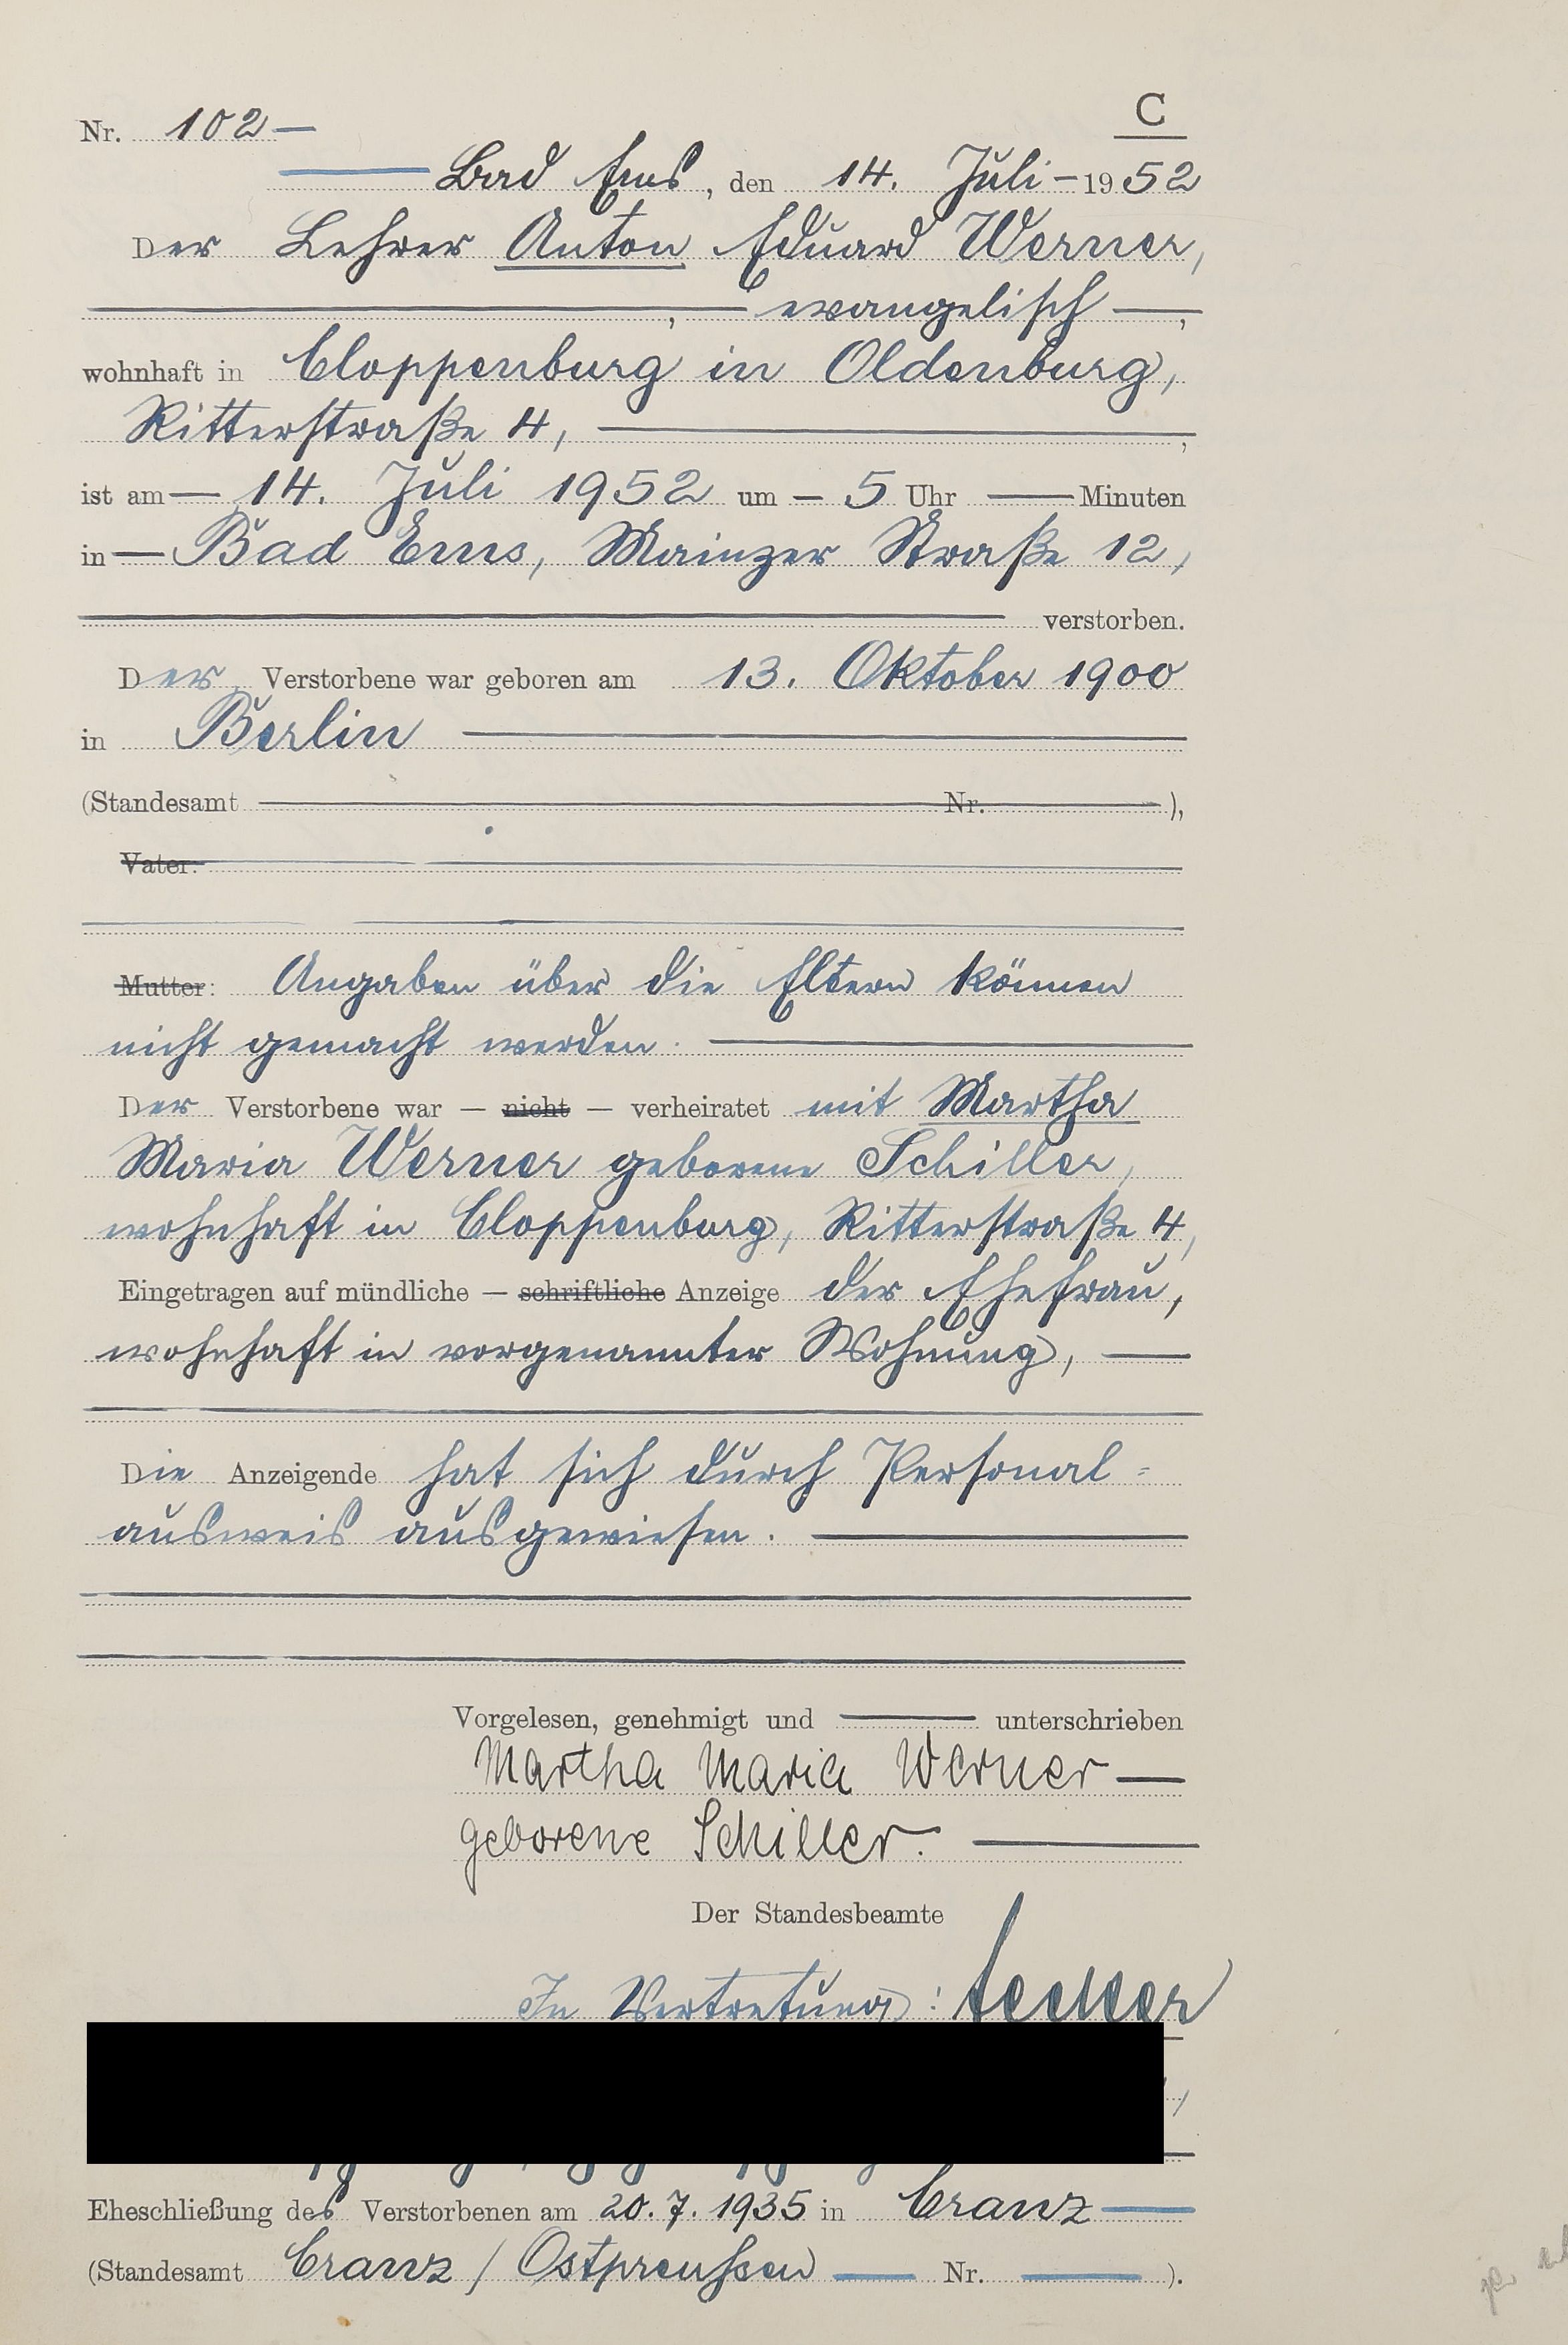 C
Nr. 102 —
Bad Ems, den 14. Juli - 1952
Der Lehrer Anton Eduard Werner,
, — evangelisch —,
wohnhaft in Cloppenburg in Oldenburg,
Ritterstraße 4, ,
ist am — 14. Juli 1952 um — 5 Uhr — Minuten
in — Bad Ems, Mainzer Straße 12,
verstorben.
Der Verstorbene war geboren am 13. Oktober 1900
in Berlin
(Standesamt Nr. ),
Vater:
Mutter: Angaben über die Eltern können
nicht gemacht werden.
Der Verstorbene war — nicht — verheiratet mit Martha
Maria Werner geborene Schiller,
wohnhaft in Cloppenburg, Ritterstraße 4,
Eingetragen auf mündliche — schriftliche Anzeige der Ehefrau,
wohnhaft in vorgenannter Wohnung, —
Die Anzeigende hat sich durch Personal=
ausweis ausgewiesen.
Vorgelesen, genehmigt und unterschrieben
Martha Maria Werner —
geborene Schiller.
Der Standesbeamte
In Vertretung:
Eheschließung des Verstorbenen am 20.7.1935 in Cranz —
(Standesamt Cranz / Ostpreußen — Nr. — ).